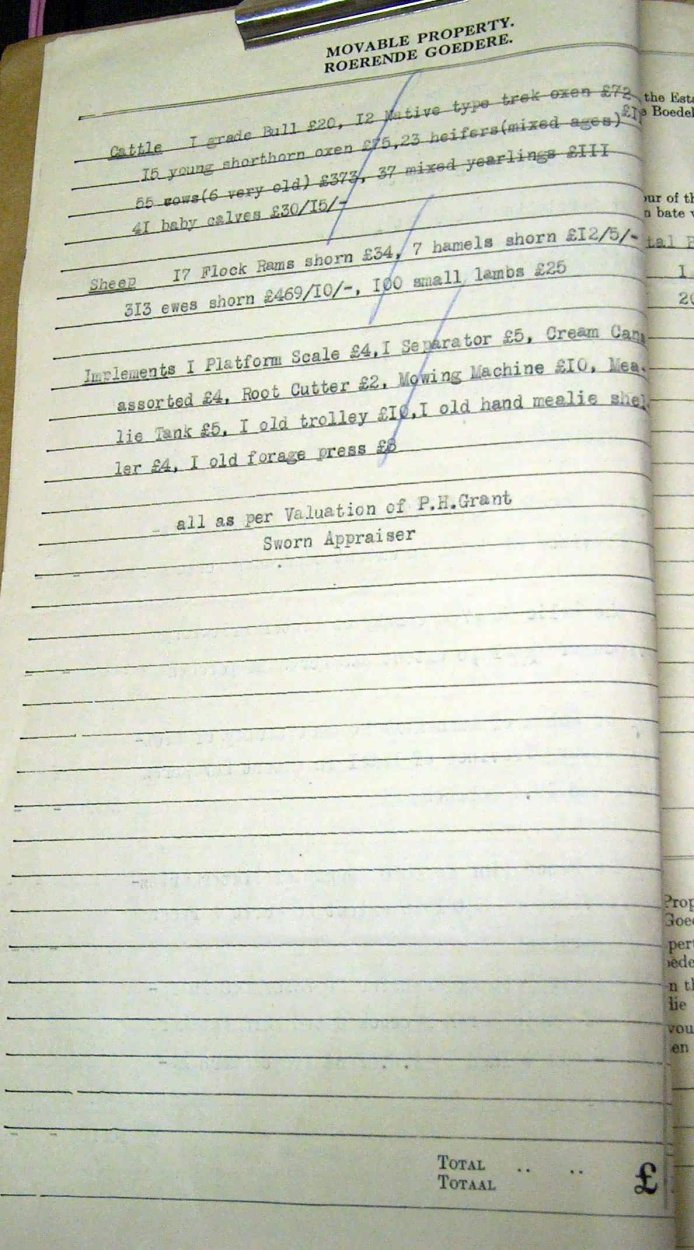 MOVABLE PROPERTY.
ROERENDE GOEDERE.
Cattle I grade Bull £20, I2 Native type trek oxen £72
I5 young shorthorn oxen £75,23 heifers(mixed ages)
55 cows(6 very old) £373, 37 mixed yearlings £III
4I baby calves £30/I5/-
Sheep I7 Flock Rams shorn £34, 7 hamels shorn £I2/5/-
3I3 ewes shorn £469/I0/-, I00 small lambs £25
Implements I Platform Scale £4,I Separator £5, Cream Cans
assorted £4, Root Cutter £2, Mowing Machine £I0, Mea-
lie Tank £5, I old trolley £I0,I old hand mealie shel
ler £4, I old forage press £8
all as per Valuation of P.H.Grant
Sworn Appraiser
TOTAL .. ..
TOTAAL
£
the Esta
Boedel